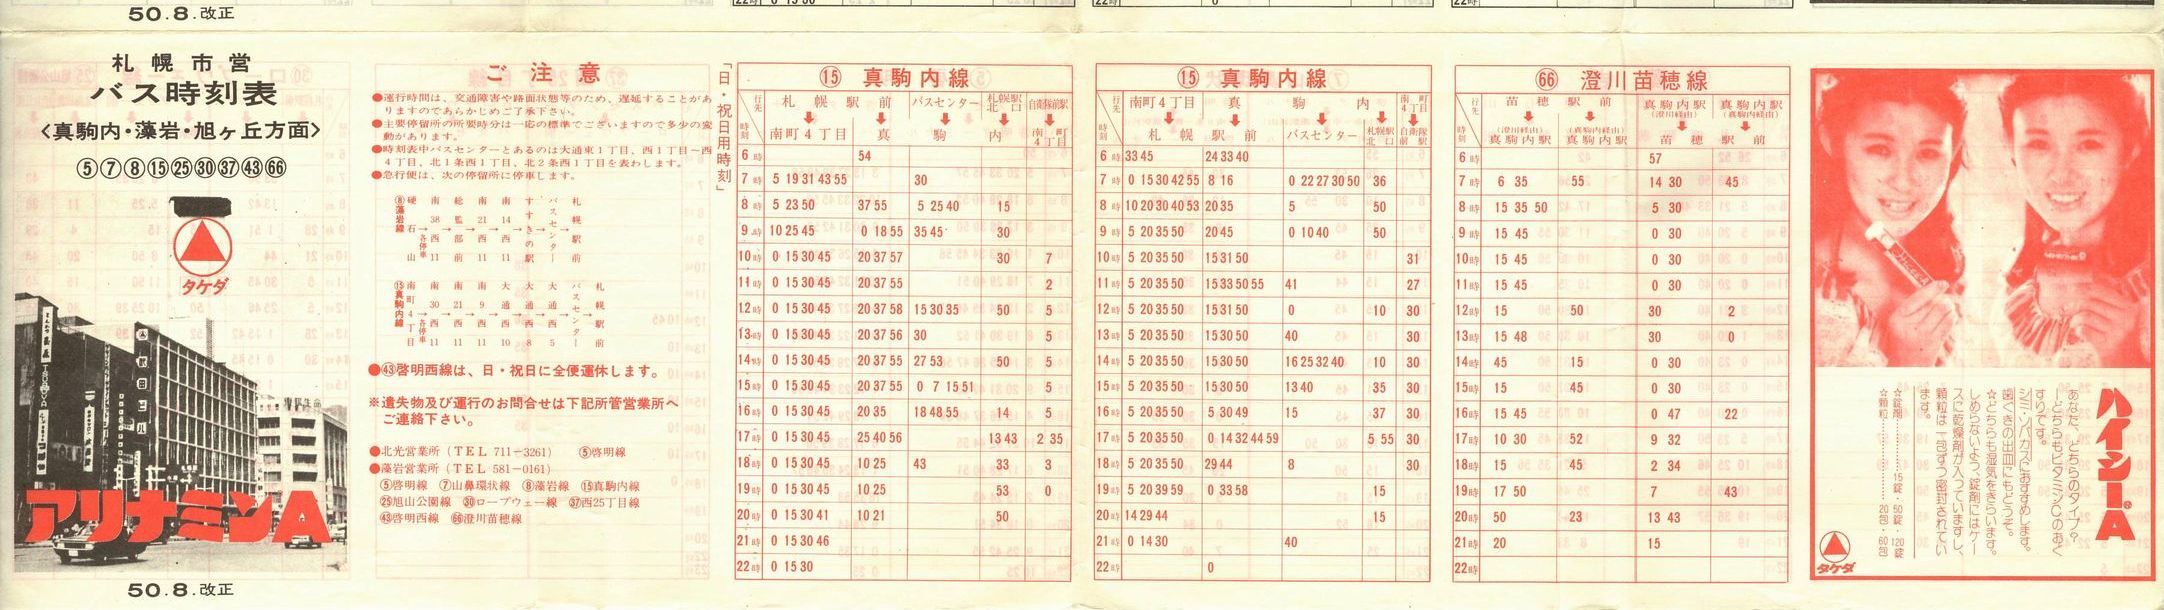 50.8.改正
札幌市営
バス時刻表
<真駒内・藻岩・旭ヶ丘方面>
⑤⑦⑧⑮㉕㉚㊲㊸66
タケダ
アリナミンA
50.8.改正
ご注意
●運行時間は、交通障害や路面状態等のため、遅延することがあ
りますのであらかじめご了承下さい。
●主要停留所の所要時分は一応の標準でございますので多少の変
動があります。
●時刻表中バスセンターとあるのは大通東1丁目、西1丁目〜西
4丁目、北1条西1丁目、北2条西1丁目を表わします。
●急行便は、次の停留所に停車します。
⑧藻岩線
⑮真駒内線
●㊸啓明西線は、日・祝日に全便運休します。
※遺失物及び運行のお問合せは下記所管営業所へ
ご連絡下さい。
●北光営業所(TEL 711-3261) ⑤啓明線
●藻岩営業所(TEL 581-0161)
⑤啓明線 ⑦山鼻環状線 ⑧藻岩線 ⑮真駒内線
㉕旭山公園線 ㉚ロープウェー線 ㊲西25丁目線
㊸啓明西線 66澄川苗穂線
「日・祝日用時刻」
⑮ 真駒内線
行先 札幌駅前 バスセンター 札幌駅北口 自衛隊前駅
時刻 南町4丁目 真駒内 南町4丁目
6時 54
7時 5 19 31 43 55 30
8時 5 23 50 37 55 5 25 40 15
9時 10 25 45 0 18 55 35 45 30
10時 0 15 30 45 20 37 57 30 7
11時 0 15 30 45 20 37 55 2
12時 0 15 30 45 20 37 58 15 30 35 50 5
13時 0 15 30 45 20 37 56 30 5
14時 0 15 30 45 20 37 55 27 53 50 5
15時 0 15 30 45 20 37 55 0 7 15 51 5
16時 0 15 30 45 20 35 18 48 55 14 5
17時 0 15 30 45 25 40 56 13 43 2 35
18時 0 15 30 45 10 25 43 33 3
19時 0 15 30 45 10 25 53 0
20時 0 15 30 41 10 21 50
21時 0 15 30 46
22時 0 15 30
⑮ 真駒内線
行先 南町4丁目 真駒内 南町4丁目
時刻 札幌駅前 バスセンター 札幌駅北口 自衛隊前駅
6時 33 45 24 33 40
7時 0 15 30 42 55 8 16 0 22 27 30 50 36
8時 10 20 30 40 53 20 35 5 50
9時 5 20 35 50 20 45 0 10 40 50
10時 5 20 35 50 15 31 50 31
11時 5 20 35 50 15 33 50 55 41 27
12時 5 20 35 50 15 31 50 0 10 30
13時 5 20 35 50 15 30 50 40 30
14時 5 20 35 50 15 30 50 16 25 32 40 10 30
15時 5 20 35 50 15 30 50 13 40 35 30
16時 5 20 35 50 5 30 49 15 37 30
17時 5 20 35 50 0 14 32 44 59 5 55 30
18時 5 20 35 50 29 44 8 30
19時 5 20 39 59 0 33 58 15
20時 14 29 44 15
21時 0 14 30 40
22時 0
66 澄川苗穂線
行先 苗穂駅前 真駒内駅(澄川経由) 真駒内駅(真駒内経由)
時刻 (澄川経由)真駒内駅 (真駒内経由)真駒内駅 苗穂駅前
6時 57
7時 6 35 55 14 30 45
8時 15 35 50 5 30
9時 15 45 0 30
10時 15 45 0 30
11時 15 45 0 30
12時 15 50 30 2
13時 15 48 30 0
14時 45 15 0 30
15時 15 45 0 30
16時 15 45 0 47 22
17時 10 30 52 9 32
18時 15 45 2 34
19時 17 50 7 43
20時 50 23 13 43
21時 20 15
22時
ハイシーA
あなた、どちらのタイプ?
―どちらもビタミンCのおく
すりです。
シミ・ソバカスにおすすめします。
歯ぐきの出血にもどうぞ。
☆どちらも湿気をきらいます。
しめらないよう、錠剤にはケー
スに乾燥剤が入っていますし、
顆粒は一包ずつ密封されてい
ます。
☆錠剤……15錠・50錠・120錠
☆顆粒……20包・60包
タケダ